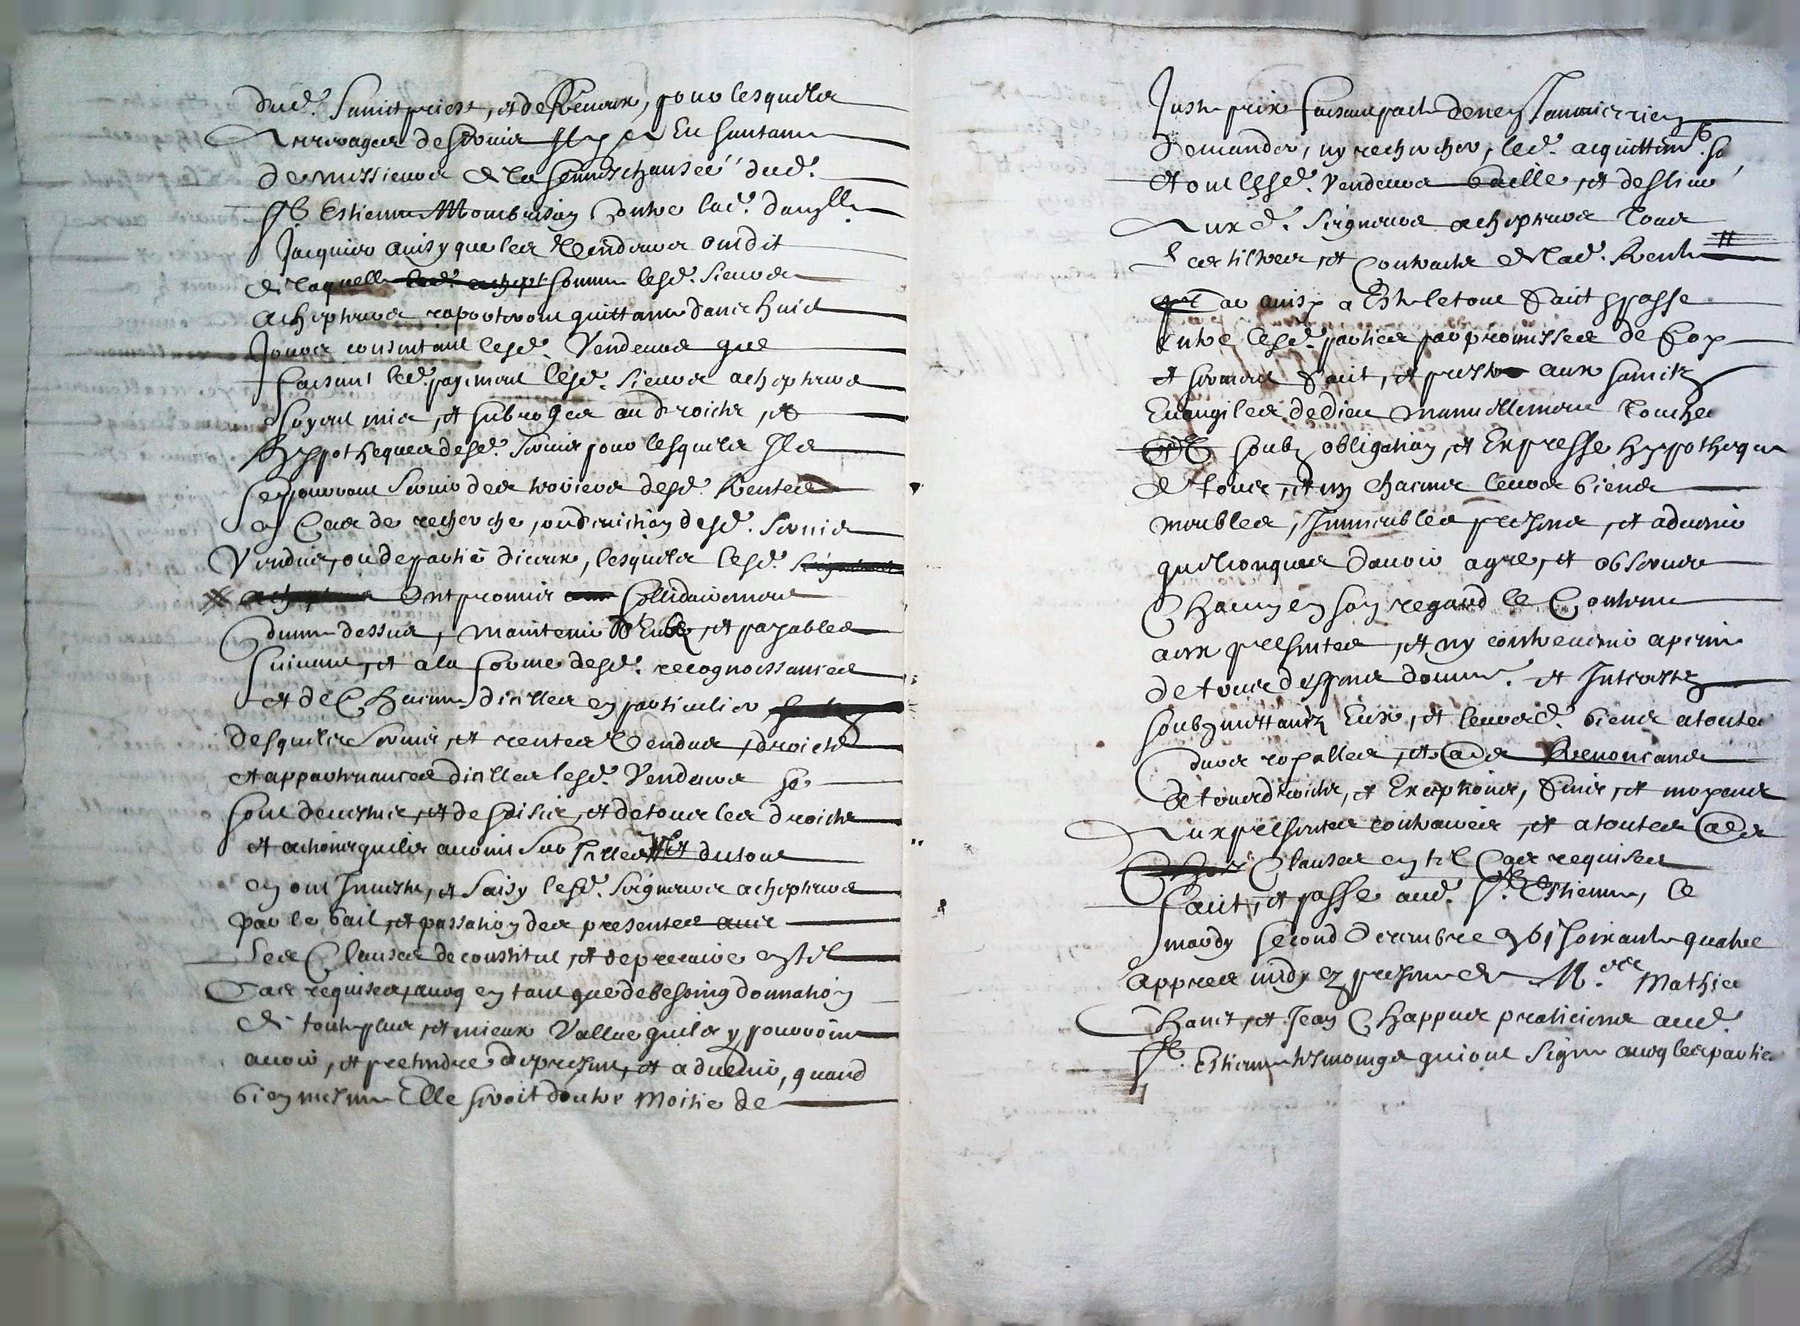 dud. Sainct priest, et de Revoux, pour lesquelz
Arrerages de servis Il y a Eu santance
de messieurs de la senneschaussée dud.
St. Estienne Montbrison Contre lad. damlle
Jacquier ainsy que les Vendeurs ont dit
de laquelle somme lesd. sieurs
achepteurs rapporteront quittance dans huict
Jours consentant lesd. Vendeurs que
faisant led. payement lesd. sieurs achepteurs
soyent mis, et subrogés au droicts, et
hyppotheques desd. servis pour lesquelz Ils
se pourront servir des terriers desd. Rentes
en Cas de recherche, ou eviction desd. servis
Vendus, ou de partie d'iceux, lesquelz lesd.
ont promis sollidairement
Comme dessus, maintenir et payables
suivant, et a la forme desd. recognoissances
et de Chacune d'icelles en particulier
desquelz servis, et rentes Vendus, droicts
et appartenances d'icelles lesd. Vendeurs se
sont demis, et desaisis, et de tous les droicts
et actions quilz avoint sur Icelles et du tout
en ont Investu, et saisy lesd. seigneurs achepteurs
par le bail, et passation des presentes avec
Les Clauses de constitut, et de precaire en tel
Cas requises, avecq en tant que de besoing donnation
de toute plus, et mieux Vallue quilz y pourroint
avoir, et pretendre de present, et advenir, quand
bien mesme Elle seroit d'outre Moitie de
Juste prix faisant pacte de ne Jamais rien
Demander, ny rechercher, led. acquittem.
et ont lesd. Vendeurs baille, et deslivré
Aux d. seigneurs achepteurs tous
Les tiltres, et Contracts de lad. Rente
Car ainsy a Esté le tout faict & passé
Entre lesd. parties par promisses de foy
et serment faict, et presté aux saincts
Evangiles de Dieu manuellement touchés
soubz obligation, et Expresse hyppotheque
de tous, et un chacuns leurs biens
meubles, Immeubles presens, et advenir
quelconques d'avoir agré, et observer
Chacun en son regard le Contenu
aux presentes, et ny contrevenir a peine
de tous despens domm. et Interestz
soubzmettantz Eux, et leurs d. biens a toutes
Cours royalles, et Cas Renonceans
de tous droicts, et Exceptions, faicts, et moyens
Aux presentes contraires, et a toutes
Clauses en tel Cas requises
faict, et passé aud. St. Estienne, le
mardy second Decembre 1661 soixante quatre
appres midy ez presence de Me Mathieu
Chanet, et Jean Chappuis praticiens aud.
St. Estienne tesmoings qui ont signé avecq les parties